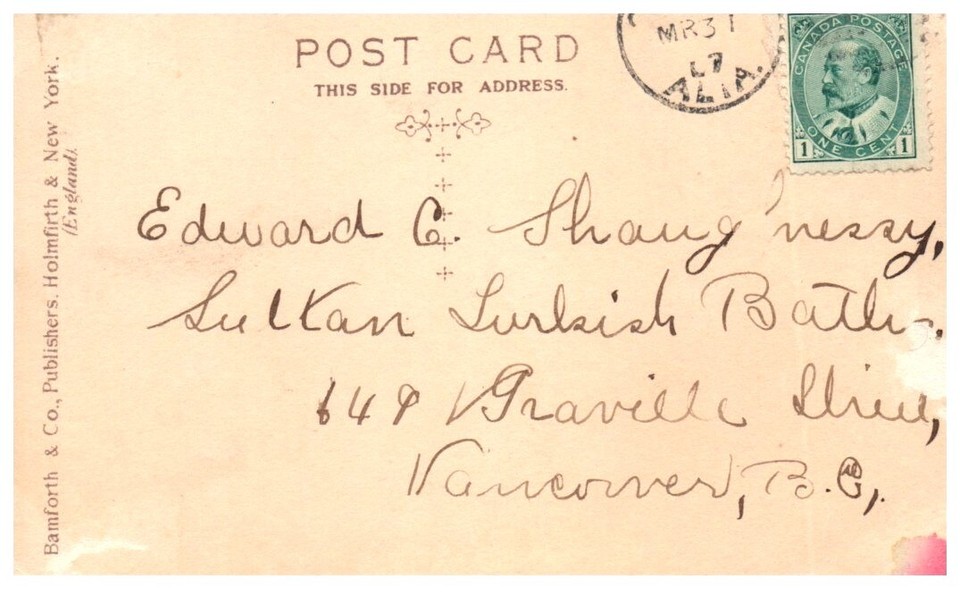 POST CARD
THIS SIDE FOR ADDRESS.
MR 31
ALTA.
CANADA POSTAGE
ONE CENT
1 1
Edward C. Shaug'nessy,
Sultan Turkish Baths.
649 Granville Street,
Vancouver, B.C.,
Bamforth & Co., Publishers, Holmfirth & New York.
(England).